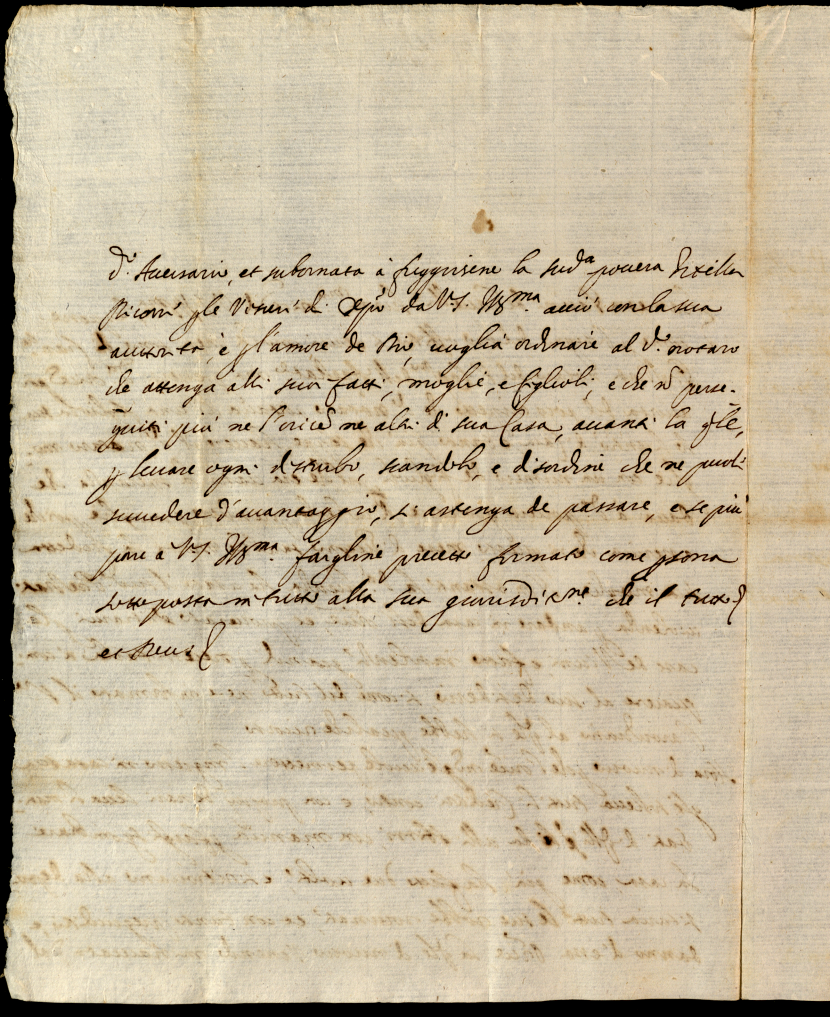 d.º Aversario, et subornata à fuggirsene la sud.ª povera Zitella
Ricorre p le viscere di da V.S. Ill.ma acciò con la sua
autorità è p l'amore de Dio, voglia ordinare al d.º notaro
che attenga alli suoi fatti, moglie, e figlioli, e che nõ perse-
guiti più ne l' ne altri di sua Casa, avanti la q̃le,
p levare ogni disturbo, scandolo, e disordine che ne puol
succedere d'avantaggio, s'astenga de passare, e se più
pare à V.S. Ill.ma fargline precetto firmato come psona
sottoposta in tutto alla sua giurisditne. che il tutto
et Deus